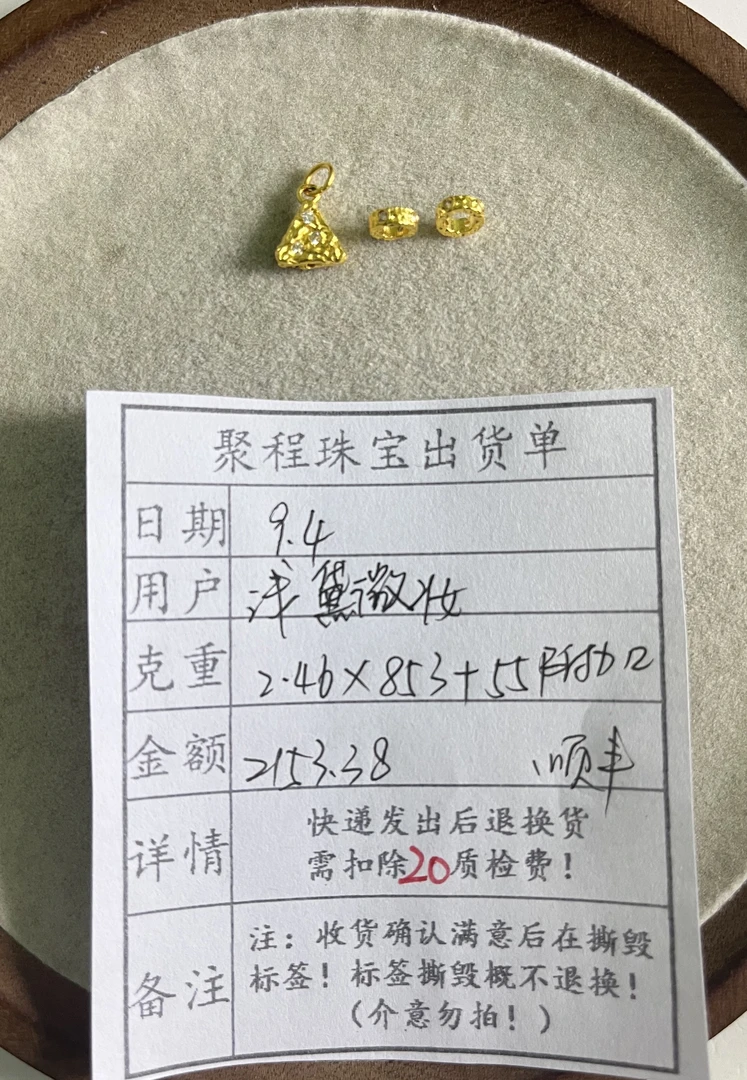 聚程珠宝出货单
日期 9.4
用户 浅黛微妆
克重 2.46×853+55附加口
金额 2153.38 顺丰
详情 快递发出后退换货
需扣除20质检费!
备注 注:收货确认满意后在撕毁
标签!标签撕毁概不退换!
(介意勿拍!)